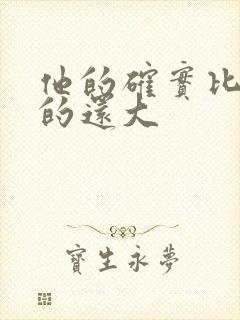 他的確實比
的還大
寶生永夢